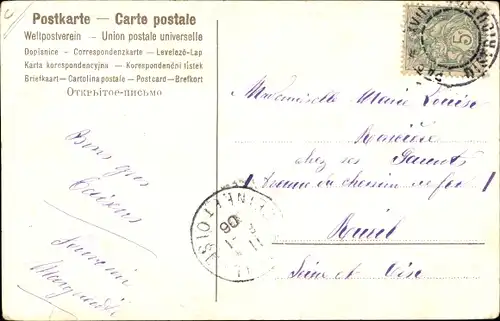 Postkarte — Carte postale
Weltpostverein — Union postale universelle
Dopisnice - Correspondenzkarte - Levelező-Lap
Karta korespondencyjna — Korespondenční lístek
Briefkaart — Cartolina postale — Postcard — Brefkort
Открытое-письмо
5
Mademoiselle Marie Louise
chez ses Parents
1 Avenue du chemin de fer 1
Rueil
Seine et Oise
Bons gros
Baisers
Marguerite
06